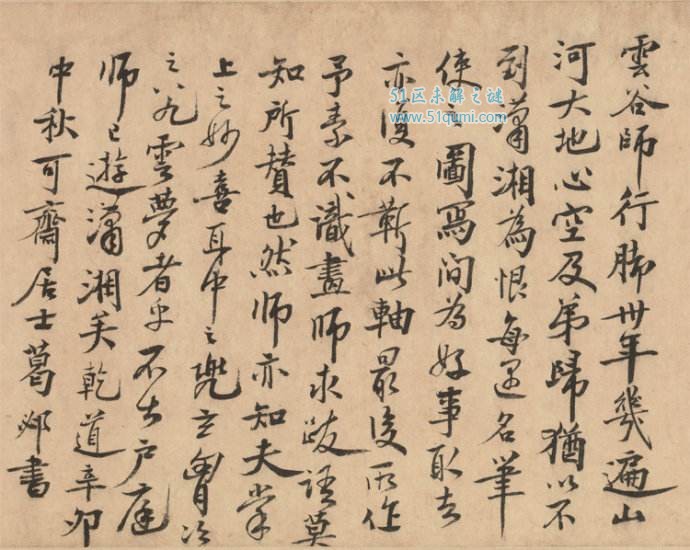 雲谷師行脚卅年幾遍山
河大地心空及弟歸猶以不
到瀟湘為恨每遇名筆
使之圖寫間為好事取去
亦復不靳此軸最後所作
予素不識畫師求跋語莫
知所贊也然師亦知夫掌
上之妙喜耳中之兜玄胷次
之八九雲夢者乎不出戶庭
師已遊瀟湘矣乾道辛卯
中秋可齋居士葛郯書
51区未解之谜
www.51qumi.com